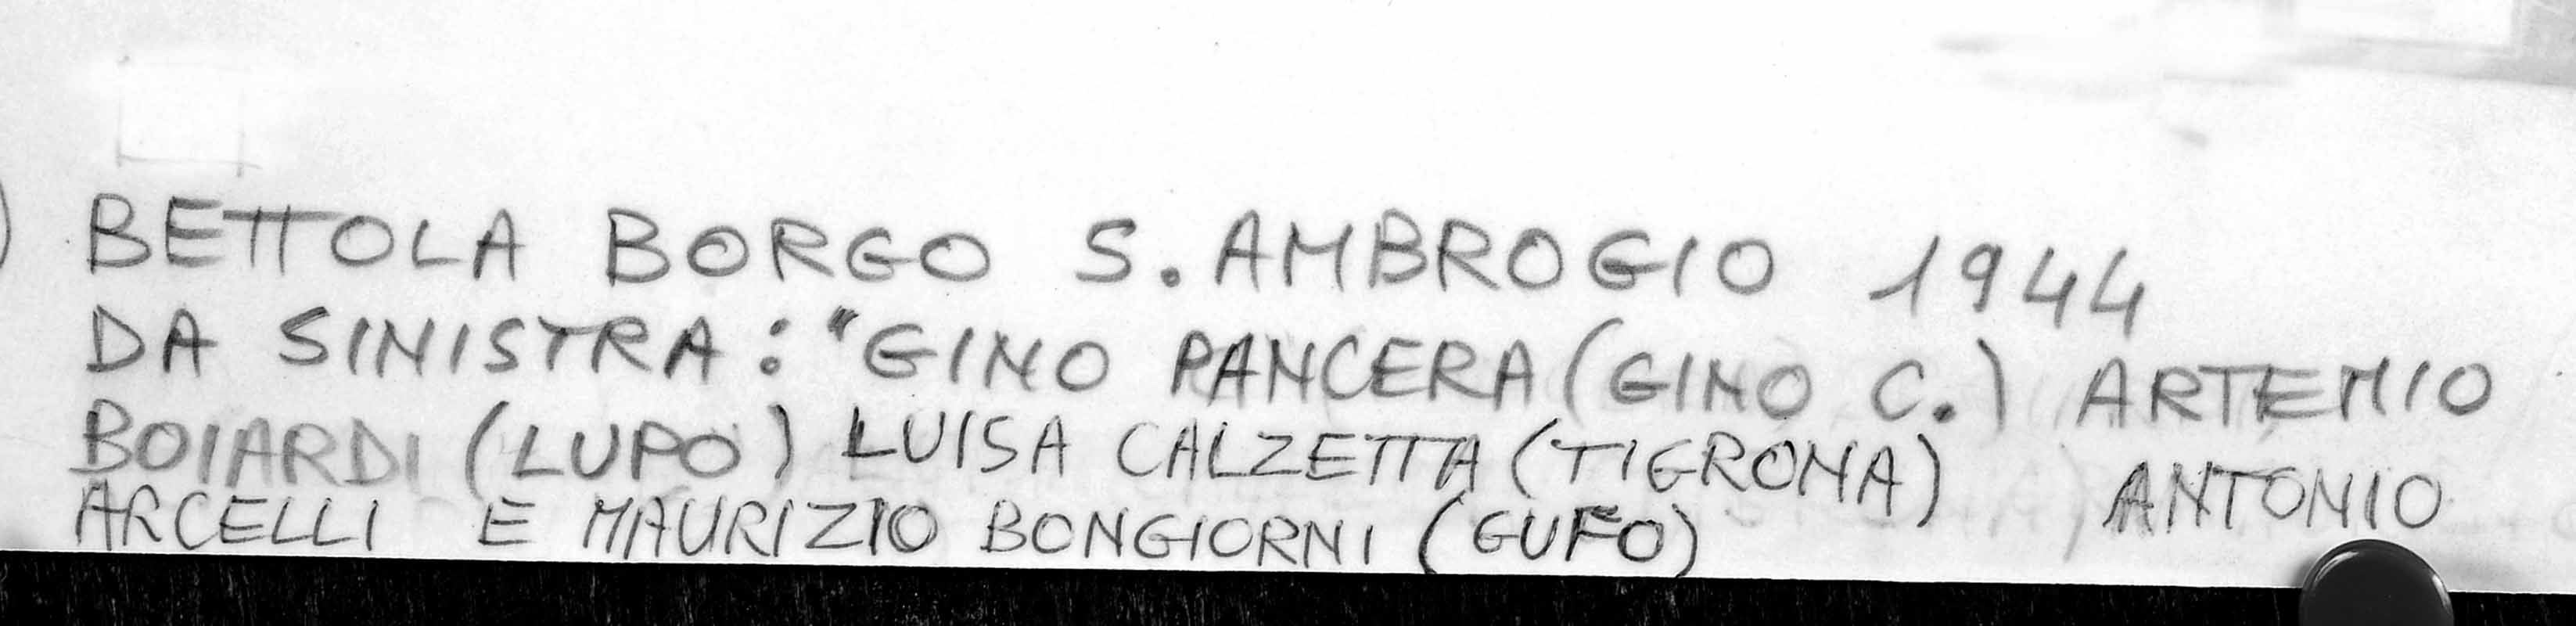 BETTOLA BORGO S. AMBROGIO 1944
DA SINISTRA: "GINO PANCERA (GINO C.) ARTEMIO
BOIARDI (LUPO) LUISA CALZETTA (TIGRONA) ANTONIO
ARCELLI E MAURIZIO BONGIORNI (GUFO)